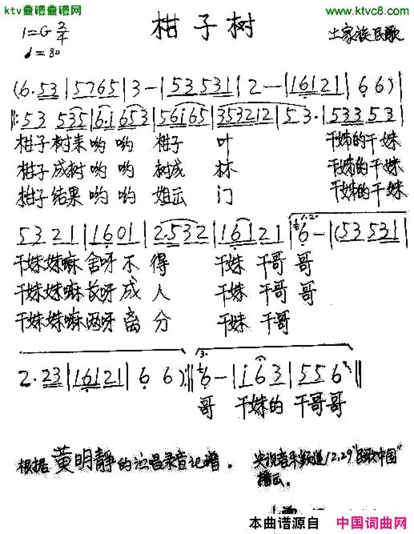 ktv查谱查谱网 www.ktvc8.com
柑子树
1=G 2/4
土家族民歌
♩=80
(6.53|5765|3-|53531|2-|16121|66)|
‖:53 535|6.i653|56i65|353212|53.|5335 3|
柑子树来哟哟 柑子 叶 干妹的干妹
柑子成树哟哟 树成 林 干妹的干妹
柑子结果哟哟 门 干妹的干妹
5321|1601|2.532|16121|6-|(53531|
干妹妹嘛舍呀不得 干妹干哥哥
干妹妹嘛长呀成人 干妹干哥哥
干妹妹嘛两呀离分 干妹干哥
2.23|16121|66):‖6-|i63|556‖
哥 干妹的干哥哥
根据黄明静的演唱录音记谱。 央视音乐频道12.29"民歌中国"
播出。
本曲谱源自 中国词曲网